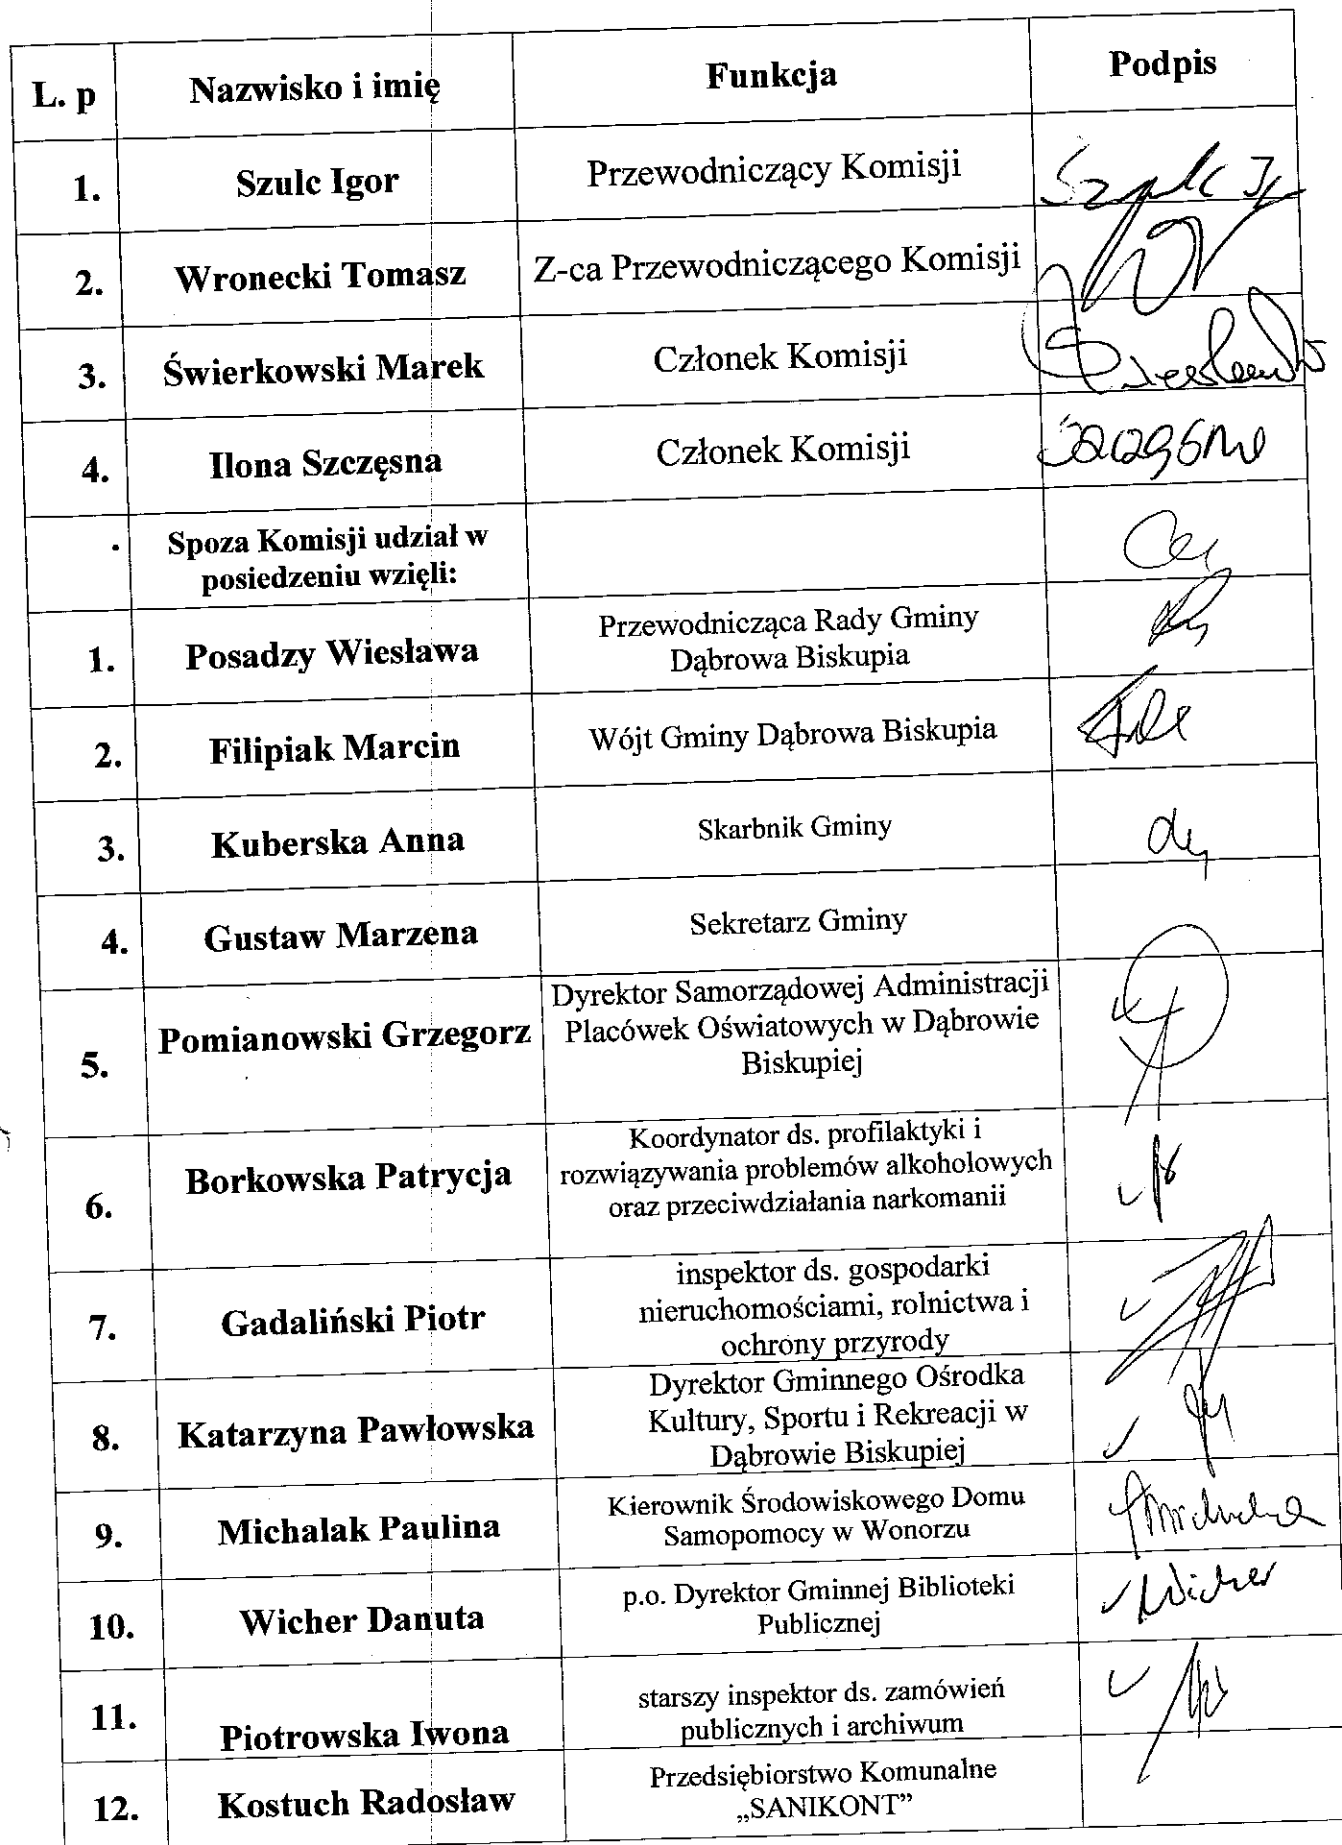 L. p Nazwisko i imię Funkcja Podpis
1. Szulc Igor Przewodniczący Komisji Szulc Ig
2. Wronecki Tomasz Z-ca Przewodniczącego Komisji
3. Świerkowski Marek Członek Komisji
4. Ilona Szczęsna Członek Komisji
. Spoza Komisji udział w
posiedzeniu wzięli:
1. Posadzy Wiesława Przewodnicząca Rady Gminy
Dąbrowa Biskupia
2. Filipiak Marcin Wójt Gminy Dąbrowa Biskupia
3. Kuberska Anna Skarbnik Gminy
4. Gustaw Marzena Sekretarz Gminy
5. Pomianowski Grzegorz Dyrektor Samorządowej Administracji
Placówek Oświatowych w Dąbrowie
Biskupiej
6. Borkowska Patrycja Koordynator ds. profilaktyki i
rozwiązywania problemów alkoholowych
oraz przeciwdziałania narkomanii
7. Gadaliński Piotr inspektor ds. gospodarki
nieruchomościami, rolnictwa i
ochrony przyrody
8. Katarzyna Pawłowska Dyrektor Gminnego Ośrodka
Kultury, Sportu i Rekreacji w
Dąbrowie Biskupiej
9. Michalak Paulina Kierownik Środowiskowego Domu
Samopomocy w Wonorzu
10. Wicher Danuta p.o. Dyrektor Gminnej Biblioteki
Publicznej
Wicher
11. Piotrowska Iwona starszy inspektor ds. zamówień
publicznych i archiwum
12. Kostuch Radosław Przedsiębiorstwo Komunalne
„SANIKONT”